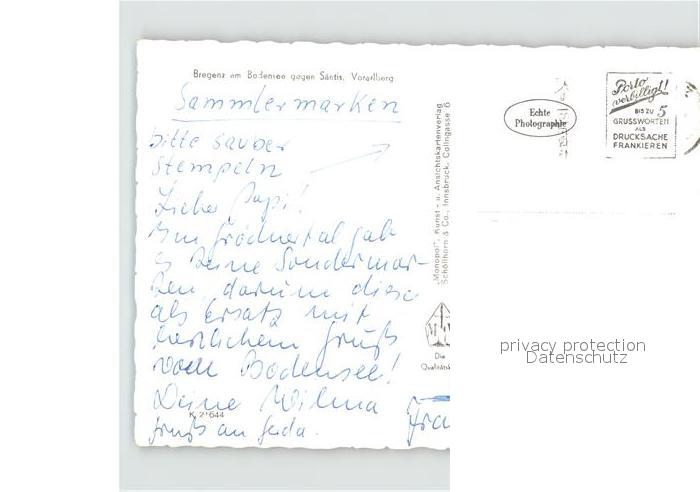 Bregenz am Bodensee gegen Säntis, Vorarlberg
Sammlermarken
bitte sauber
stempeln
Lieber Papi!
Im Grödnertal gab
es keine Sondermar-
ken, darum diese
als Ersatz mit
herzlichem Gruß
vom Bodensee!
Deine Wilma
K 21644
Gruß an Gerda.
"Monopol", Kunst- u. Ansichtskartenverlag
Schöllhorn & Co., Innsbruck, Collingasse 6
Die
Qualitäts
Fra
Echte
Photographie
Porto
verbilligt!
BIS ZU 5
GRUSSWORTEN
ALS
DRUCKSACHE
FRANKIEREN
privacy protection
Datenschutz